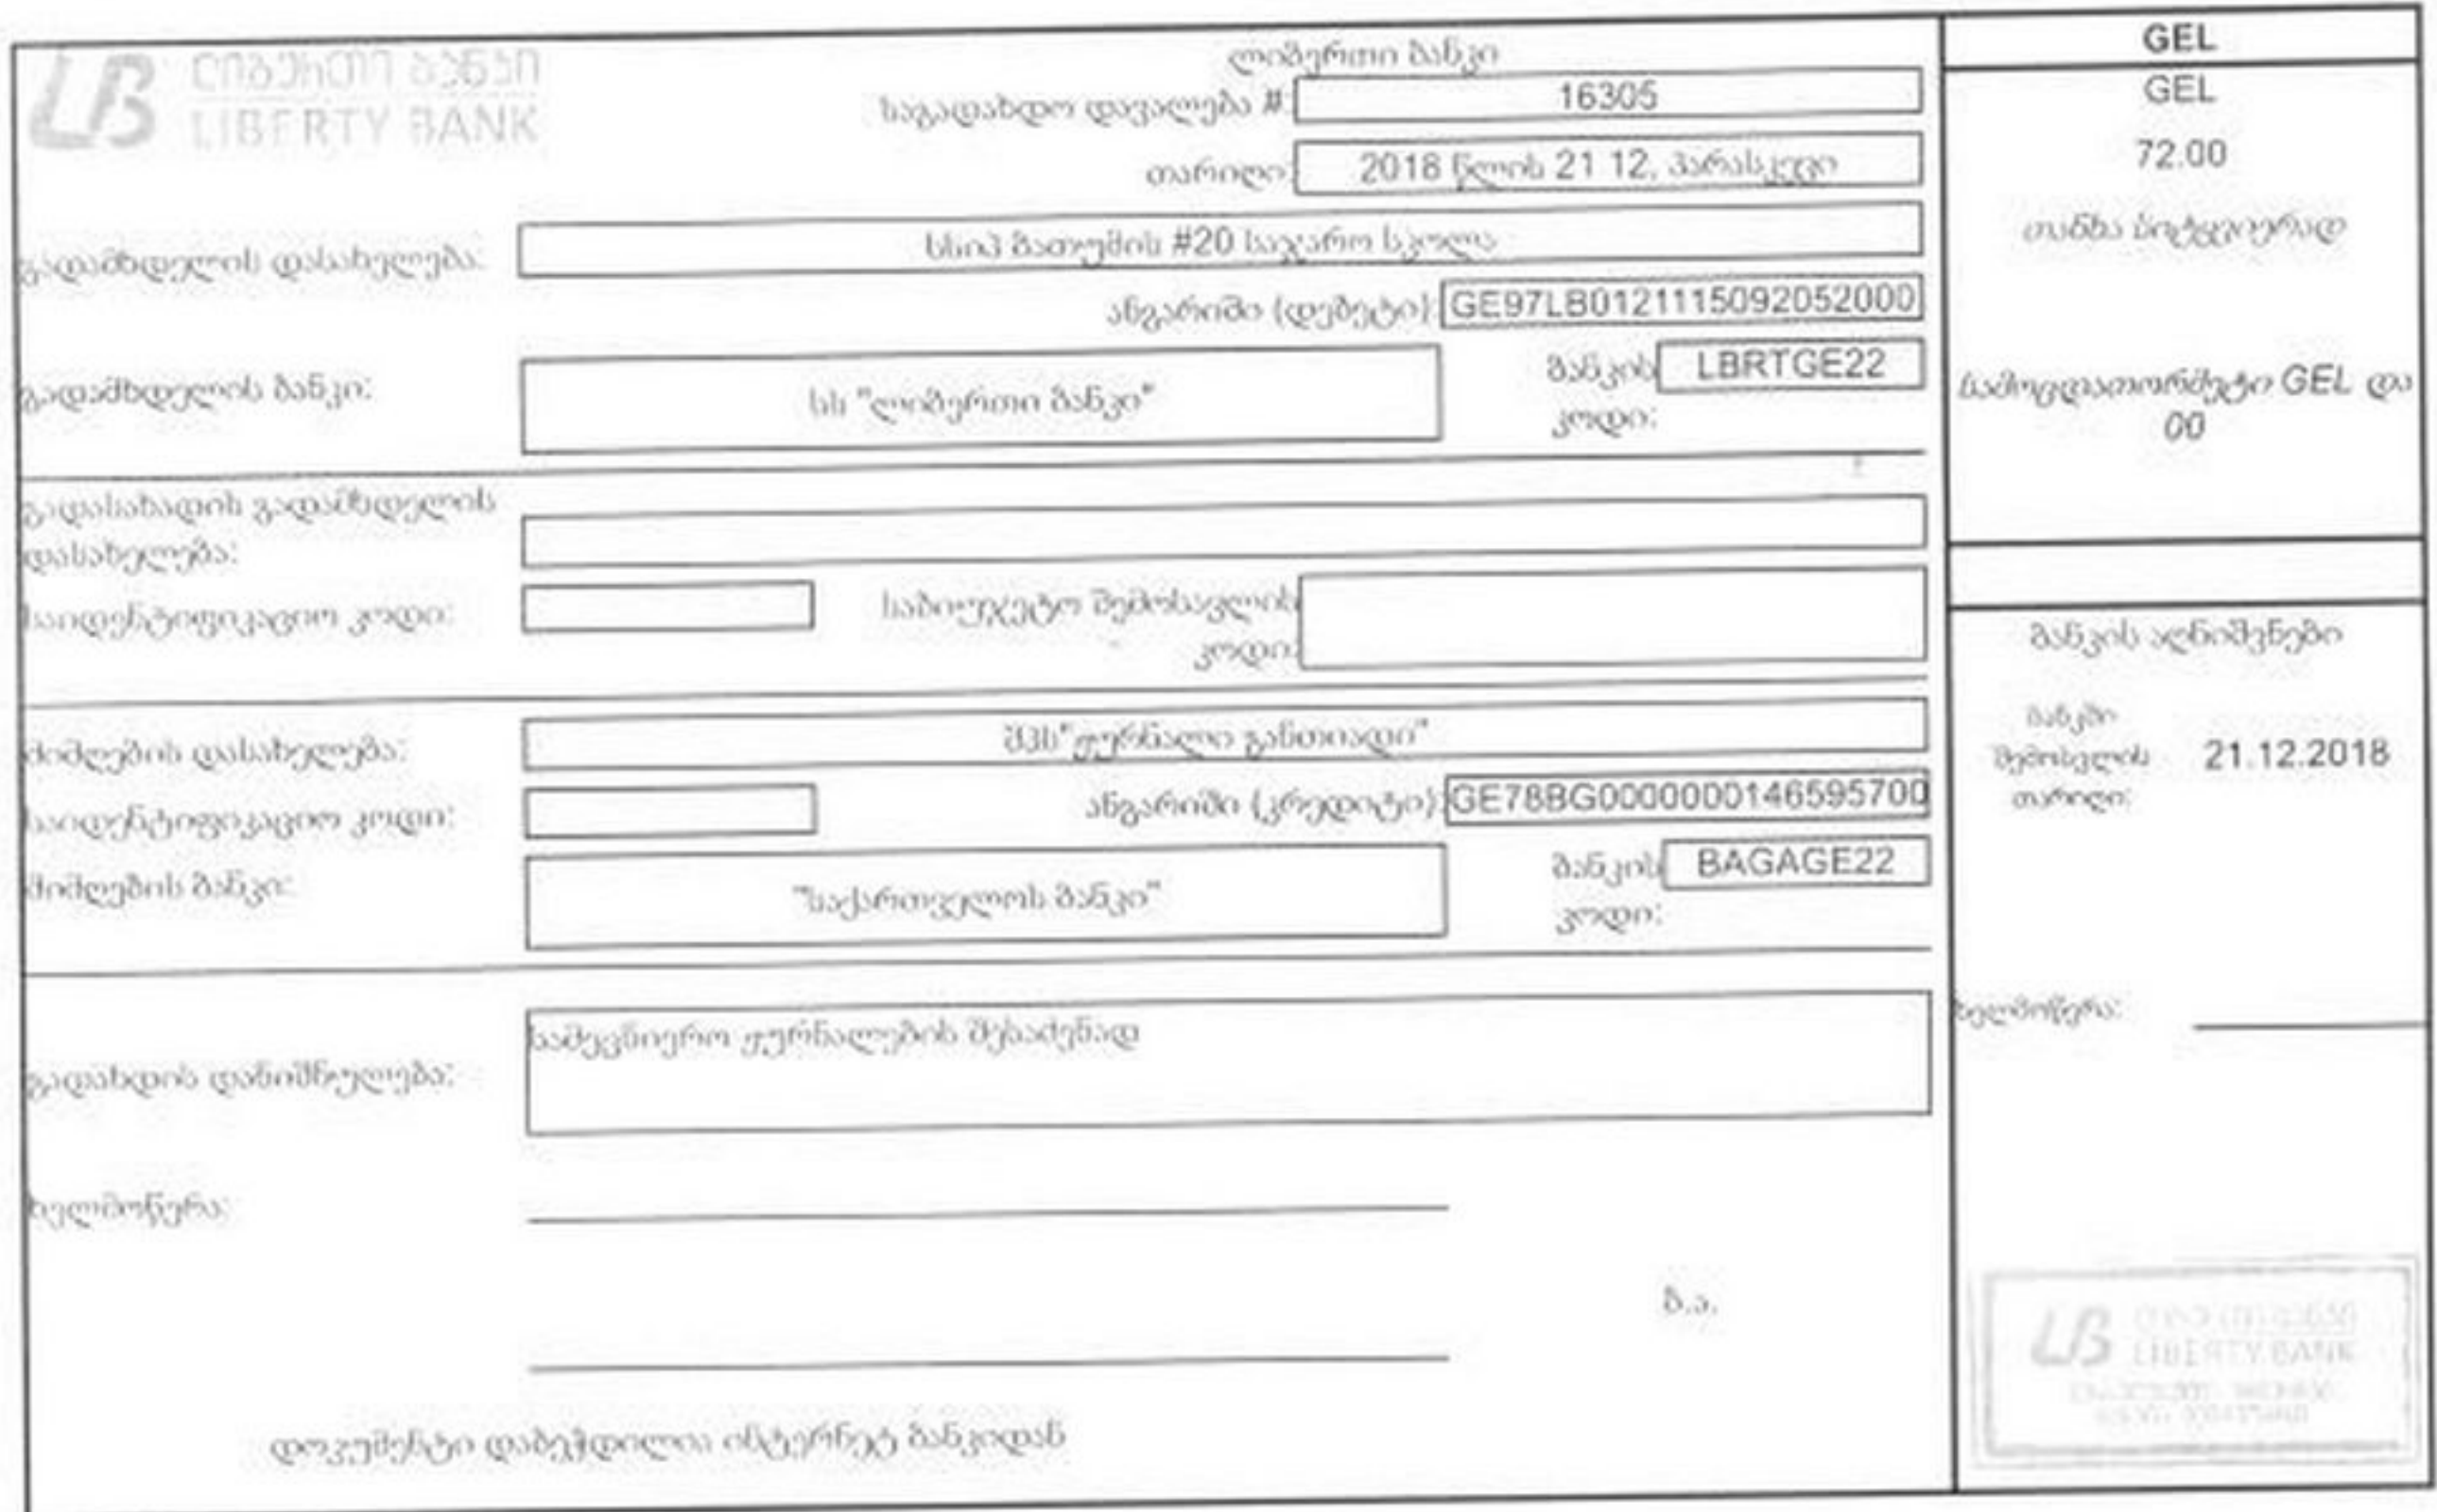 ლიბერთი ბანკი
LIBERTY BANK
ლიბერთი ბანკი
საგადახდო დავალება #: 16305
თარიღი: 2018 წლის 21 12, პარასკევი
გადამხდელის დასახელება: სსიპ ბათუმის #20 საჯარო სკოლა
ანგარიში (დებეტი): GE97LB0121115092052000
გადამხდელის ბანკი: სს "ლიბერთი ბანკი"
ბანკის კოდი: LBRTGE22
გადასახადის გადამხდელის
დასახელება:
საიდენტიფიკაციო კოდი:
საბიუჯეტო შემოსავლის
კოდი:
მიმღების დასახელება: შპს"ჟურნალი განთიადი"
საიდენტიფიკაციო კოდი:
ანგარიში (კრედიტი): GE78BG0000000146595700
მიმღების ბანკი: "საქართველოს ბანკი"
ბანკის კოდი: BAGAGE22
გადახდის დანიშნულება: სამეცნიერო ჟურნალების შესაძენად
ხელმოწერა:
ბ.ა.
დოკუმენტი დაბეჭდილია ინტერნეტ ბანკიდან
GEL
GEL
72.00
თანხა სიტყვიერად
სამოცდათორმეტი GEL და
00
ბანკის აღნიშვნები
ბანკში
შემოსვლის 21.12.2018
თარიღი:
ხელმოწერა:
LB
LIBERTY BANK